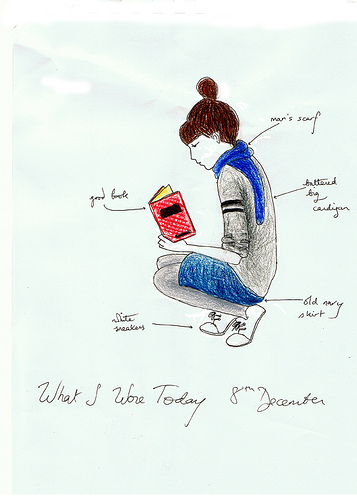 man's scarf
good book
battered
big
cardigan
old navy
skirt
white
sneakers
What I Wore Today 8th December